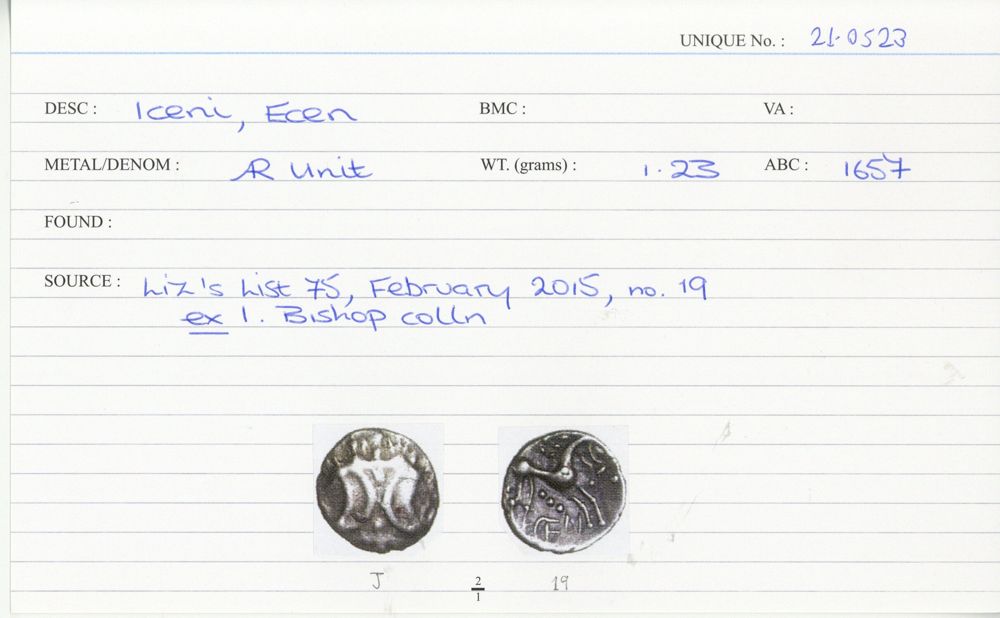 UNIQUE No. : 21.0523
DESC : Iceni, Ecen BMC : VA :
METAL/DENOM : AR Unit WT. (grams) : 1.23 ABC : 1657
FOUND :
SOURCE : Liz's List 75, February 2015, no. 19
ex I. Bishop colln
J 2/1 19